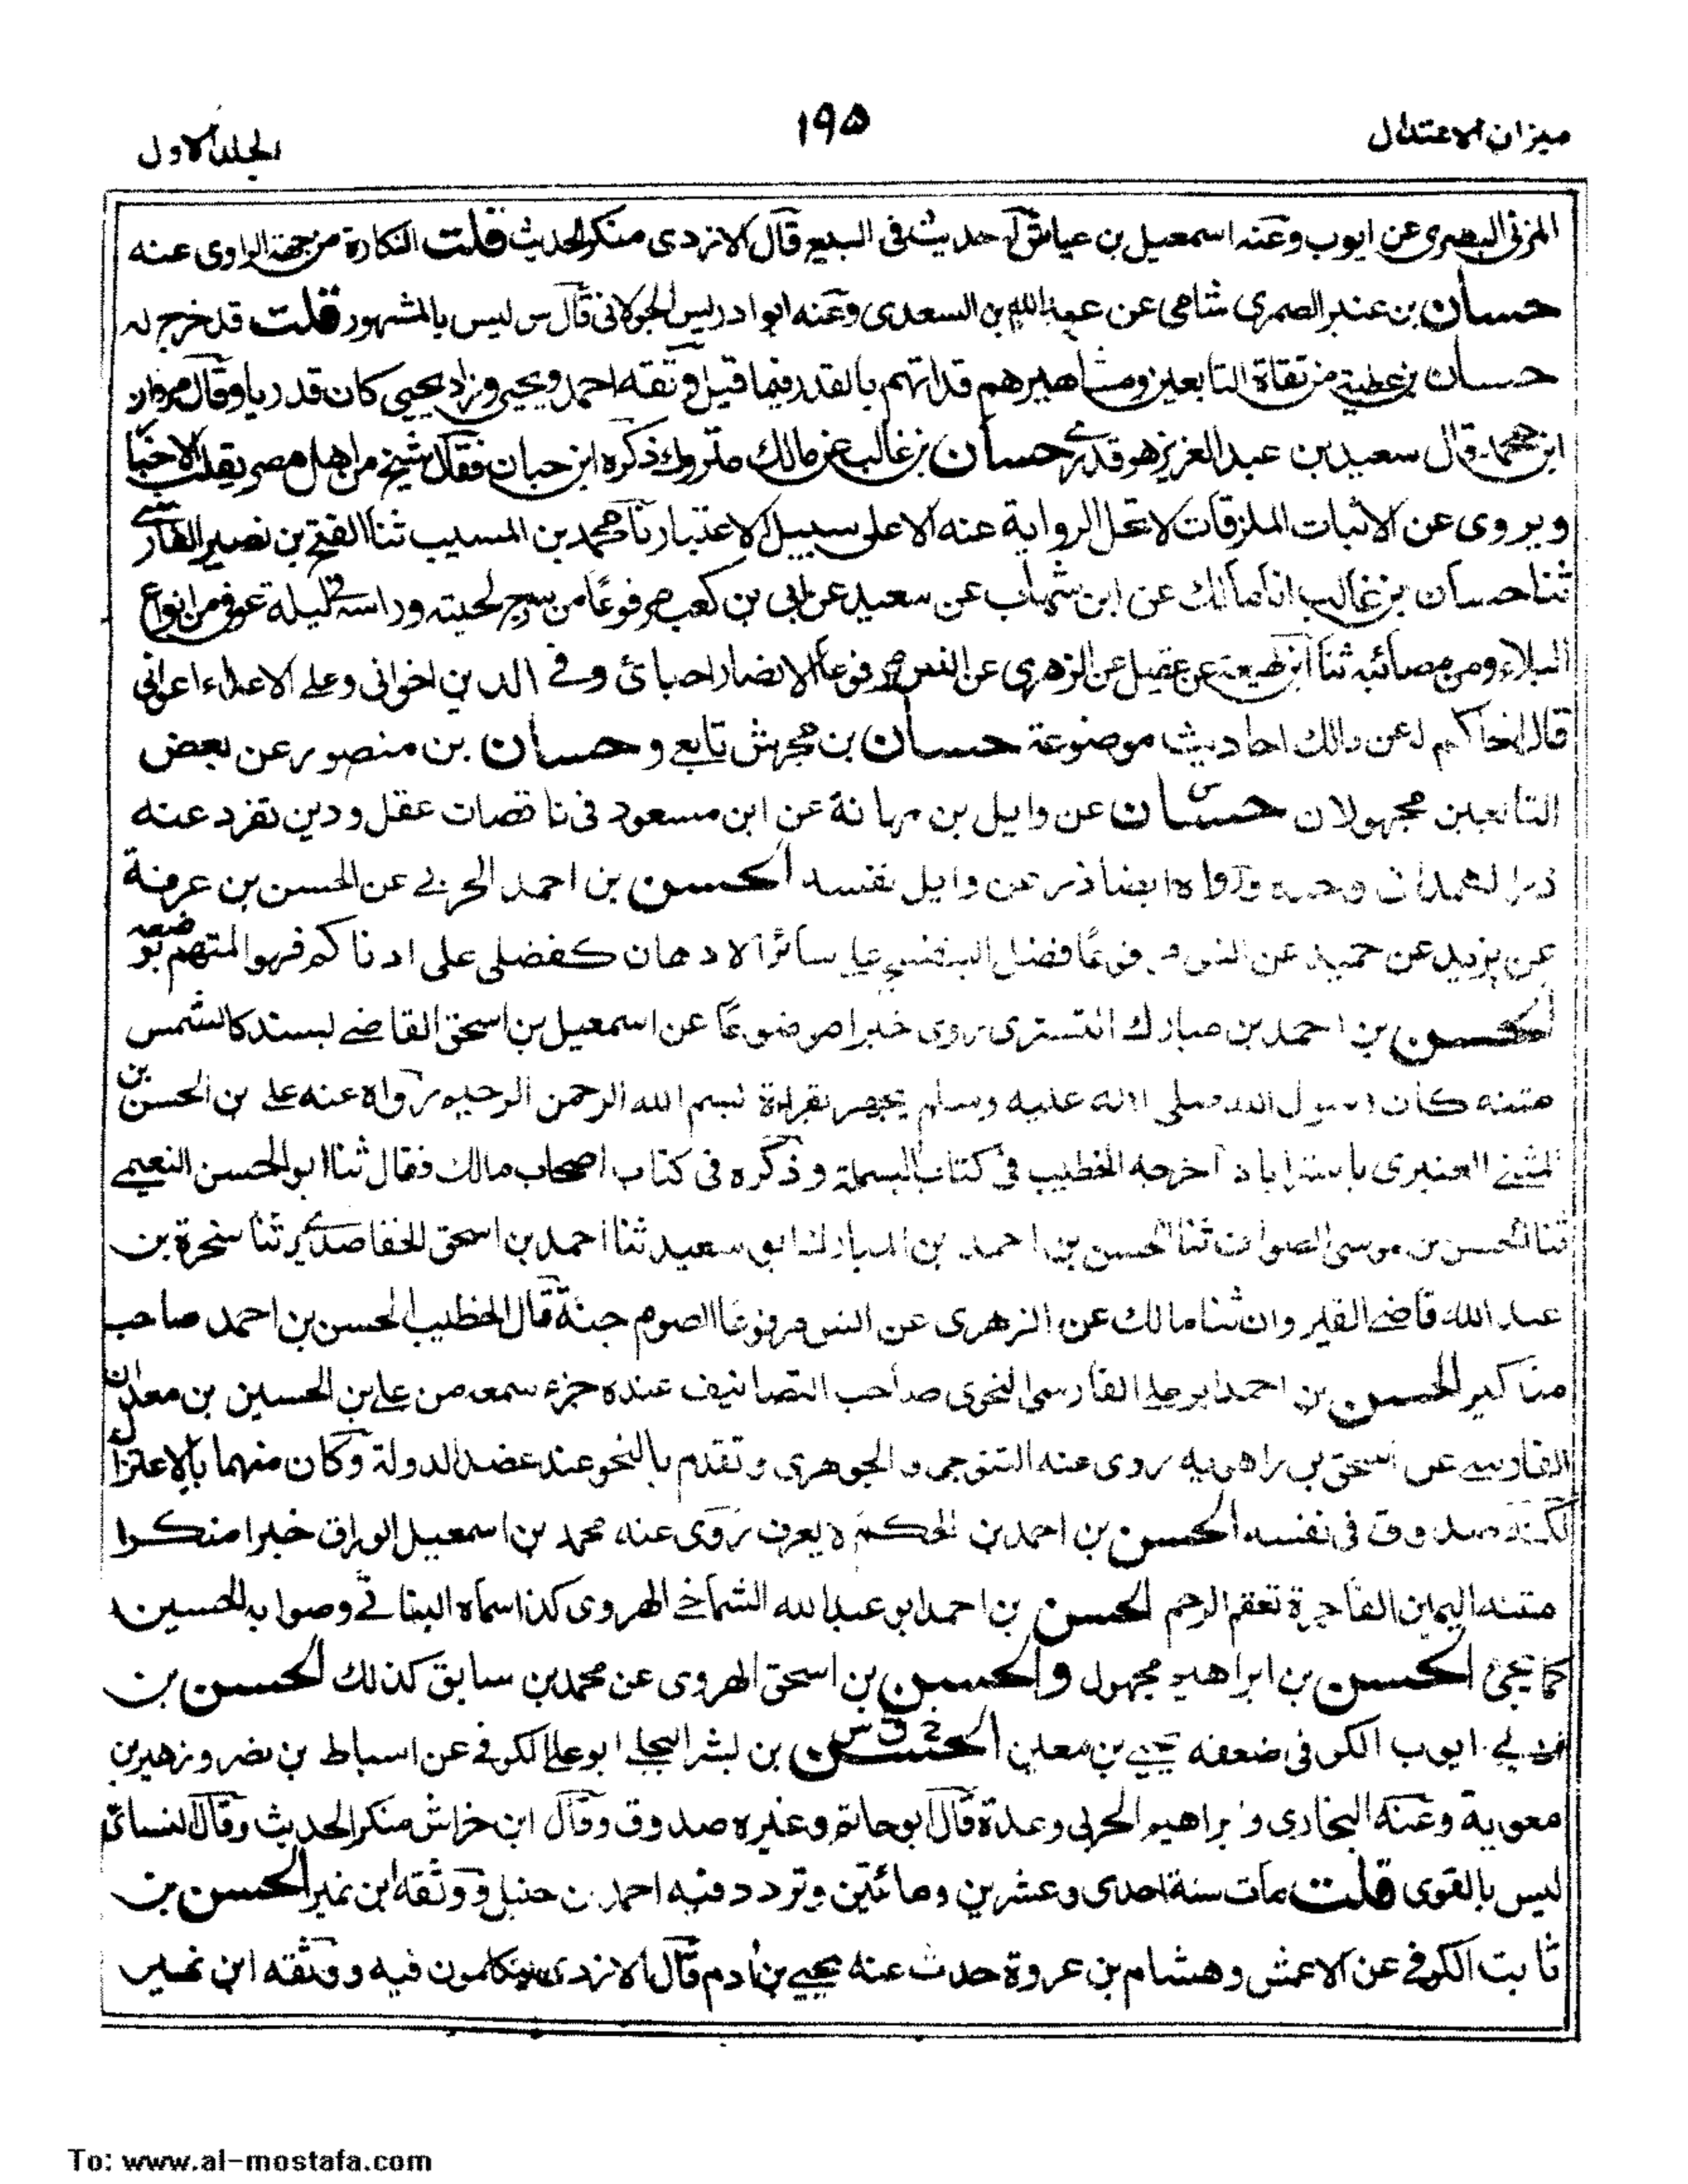 ميزان الاعتدال
١٩٥
الجلد الاول
المزنى البصرى عن ايوب وعنه اسمعيل بن عياش له حديث فى البيع قال الازدى منكر الحديث قلت النكارة من جهة الراوى عنه
حسان بن الضمرى شامى عن عبد الله بن السعدى وعنه ابو ادريس الخولانى قال س ليس بالمشهور قلت قد خرج له
حسان بن عطية من ثقاة التابعين ومشاهيرهم قد اتهم بالقدر فيما قيل وثقه احمد ويحيى وزاد يحيى كان قدريا وقال مروان
ابن محمد قال سعيد بن عبد العزيز هو قدرى حسان بن غالب عن مالك متروك ذكره ابن حبان فقال شيخ من اهل مصر يقلب الاخبا
ويروى عن الاثبات الملزقات لا تحل الرواية عنه الا على سبيل الاعتبار نا محمد بن المسيب ثنا الفتح بن نصير الفارسى
ثنا حسان بن غالب انا مالك عن ابن شهاب عن سعيد عن ابى بن كعب مرفوعا من سرح لحيته وراسه فى ليلة عوفى من انواع
البلاء ومن مصائبه ثنا ابن لهيعة عن عقيل عن الزهرى عن انس مرفوعا الانصار احبائى وفى الدين اخوانى وعلى الاعداء اعوانى
قال الحاكم له عن مالك احاديث موضوعة حسان بن مخرش تابعى وحسان بن منصور عن بعض
التابعين مجهولان حسان س عن وايل بن مهانة عن ابن مسعود فى ناقصات عقل ودين تفرد عنه
ذر الهمدانى وحده ورواه ايضا ذر عن وايل نفسه الحسن بن احمد الحربى عن الحسن بن عرفة
عن يزيد عن حميد عن انس مرفوعا فضل البنفسج على سائر الادهان كفضلى على ادناكم فهو المتهم بوضعه
الحسن بن احمد بن مبارك التسترى روى خبرا موضوعا عن اسمعيل بن اسحق القاضى بسند كالشمس
متنه كان رسول الله صلى الله عليه وسلم يجهر بقراءة بسم الله الرحمن الرحيم رواه عنه على بن الحسن بن
المثنى العنبرى باستراباد اخرجه الخطيب فى كتاب البسملة وذكره فى كتاب اصحاب مالك فقال ثنا ابو الحسن النعيمى
ثنا الحسن بن موسى الصواف ثنا الحسن بن احمد بن المبارك ابو سعيد ثنا احمد بن اسحق الخفاف ثنا شجرة بن
عبد الله قاضى القيروان ثنا مالك عن الزهرى عن انس مرفوعا الصوم جنة قال الخطيب الحسن بن احمد صاحب
مناكير الحسن بن احمد ابو على الفارسى النحوى صاحب التصانيف عنده جزء سمعه من على بن الحسين بن معدان
الفارسى عن اسحق بن راهويه روى عنه التنوخى والجوهرى وتقدم بالنحو عند عضد الدولة وكان متهما بالاعتزال
لكنه صدوق فى نفسه الحسن بن احمد بن الحكم لا يعرف روى عنه محمد بن اسمعيل الوراق خبرا منكرا
متنه اليمين الفاجرة تعقم الرحم الحسن بن احمد ابو عبد الله الشماخى الهروى كذا سماه البنانى وصوابه الحسين
كما يجئ الحسن بن ابراهيم مجهول والحسين بن اسحق الهروى عن محمد بن سابق كذلك الحسن بن
ابى ايوب الكوفى ضعفه يحيى بن معين الحسن خ ت س بن بشر البجلى ابو على الكوفى عن اسباط بن نصر وزهير بن
معوية وعنه البخارى وابراهيم الحربى وعدة قال ابو حاتم وغيره صدوق وقال ابن خراش منكر الحديث وقال النسائى
ليس بالقوى قلت مات سنة احدى وعشرين ومائتين وتردد فيه احمد بن حنبل ووثقه ابن نمير الحسن بن
ثابت الكوفى عن الاعمش وهشام بن عروة حدث عنه يحيى بن ادم قال الازدى يتكلمون فيه ووثقه ابن نمير
To: www.al-mostafa.com